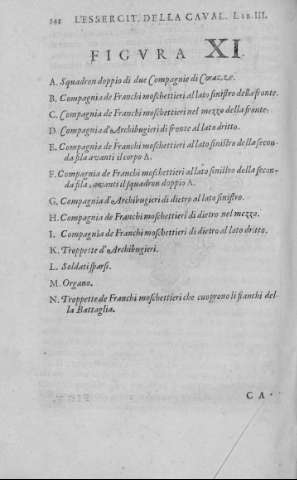 L'ESSERCIT. DELLA CAVAL. LIB. III.
FIGVRA XI.
A. Squadron doppio di due Compagnie di Corazze.
B. Compagnia de Franchi moschettieri al lato sinistro della fronte.
C. Compagnia de Franchi moschettieri nel mezzo della fronte.
D. Compagnia d'Archibugieri di fronte al lato dritto.
E. Compagnia de Franchi moschettieri al lato sinistro della secon-
da fila avanti il corpo A.
F. Compagnia de Franchi moschettieri al lato sinistro della secon-
da fila, avanti il squadron doppio A.
G. Compagnia d'Archibugieri di dietro al lato sinistro.
H. Compagnia de Franchi moschettieri di dietro nel mezzo.
I. Compagnia de Franchi moschettieri di dietro al lato dritto.
K. Troppette d'Archibugieri.
L. Soldati sparsi.
M. Organo.
N. Troppette de Franchi moschettieri che cuoprono li fianchi del-
la Battaglia.
CA-